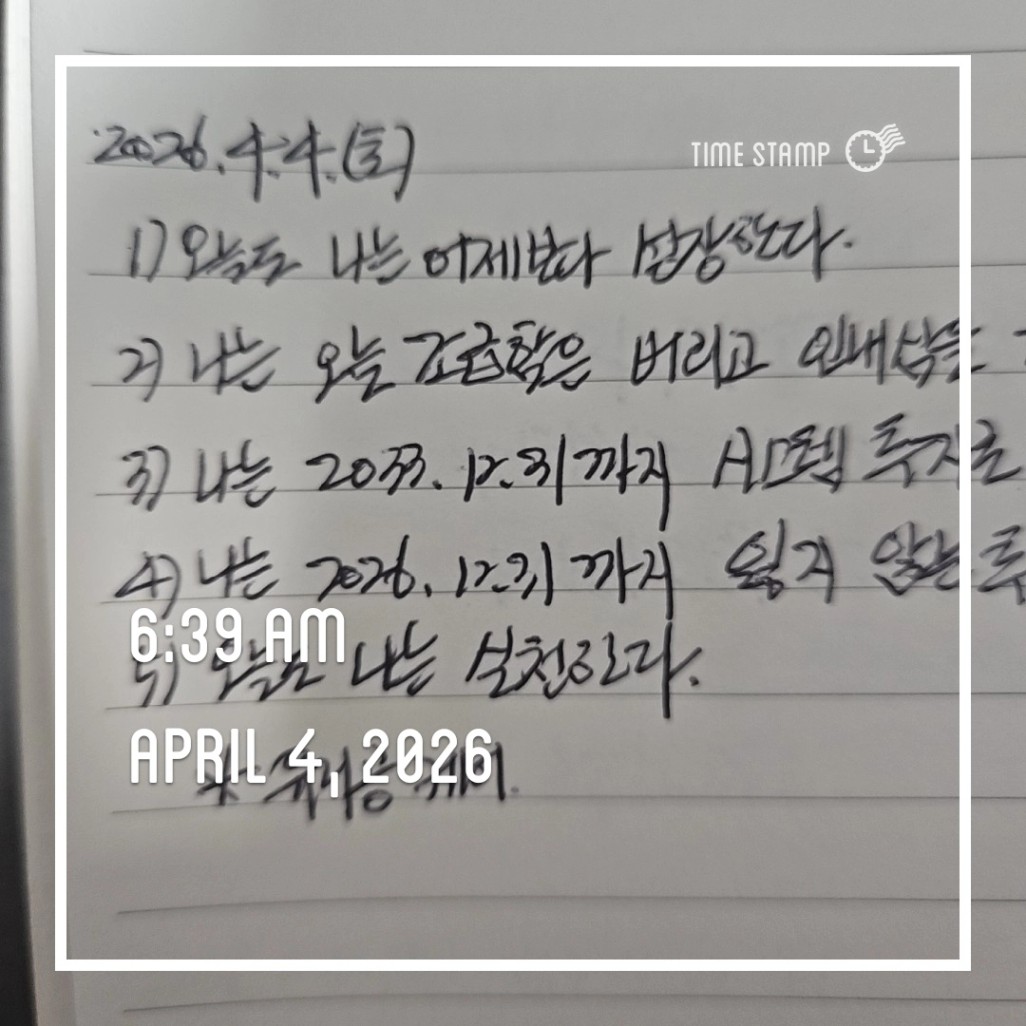 2026.4.4.(토)
TIME STAMP
1) 오늘도 나는 어제보다 성장한다.
2) 나는 오늘 조급함은 버리고 인내심을
3) 나는 2033.12.31까지 투자로
4) 나는 2026.12.31까지 잃지 않는
6:39 AM
5) 오늘도 나는 실천한다.
APRIL 4, 2026